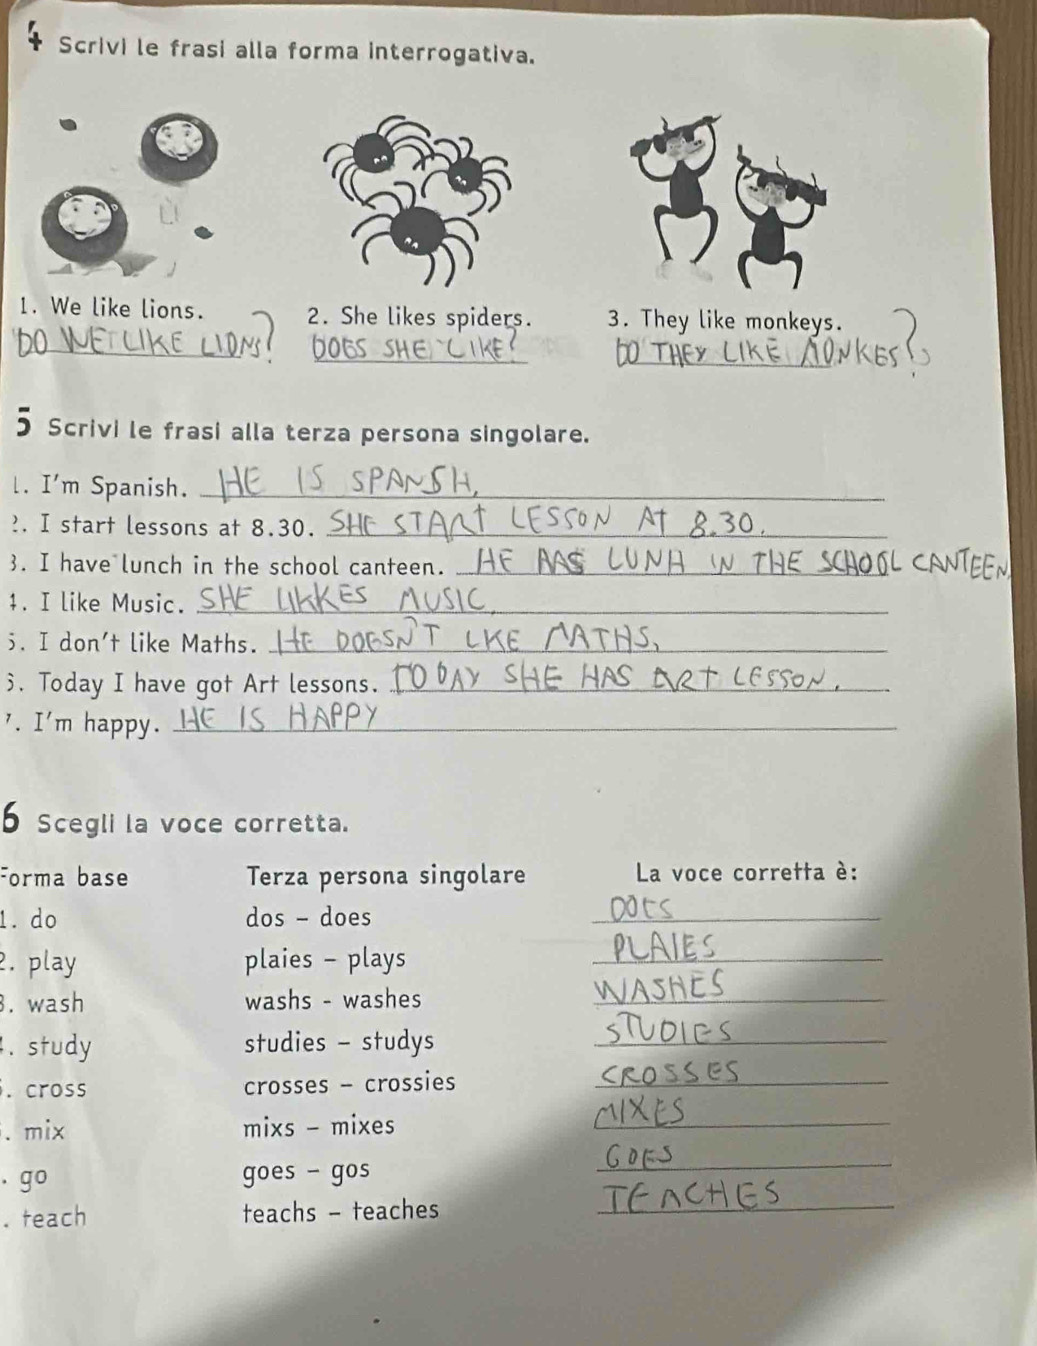 4 Scrivi le frasi alla forma interrogativa.
1. We like lions.
2. She likes spiders.
3. They like monkeys.
DO WE LIKE LIONS?
DOES SHE LIKE?
DO THEY LIKE MONKES?
5 Scrivi le frasi alla terza persona singolare.
1. I'm Spanish. HE IS SPANSH.
2. I start lessons at 8.30. SHE START LESSON AT 8.30.
3. I have lunch in the school canteen. HE HAS LUNH IN THE SCHOOL CANTEEN.
4. I like Music. SHE LIKKES MUSIC.
5. I don't like Maths. HE DOESN'T LKE MATHS.
6. Today I have got Art lessons. TODAY SHE HAS ART LESSON.
7. I'm happy. HE IS HAPPY
6 Scegli la voce corretta.
Forma base Terza persona singolare La voce corretta è:
1. do dos - does DOES
2. play plaies - plays PLAIES
3. wash washs - washes WASHES
4. study studies - studys STUDIES
5. cross crosses - crossies CROSSES
. mix mixs - mixes MIXES
. go goes - gos GOES
. teach teachs - teaches TEACHES